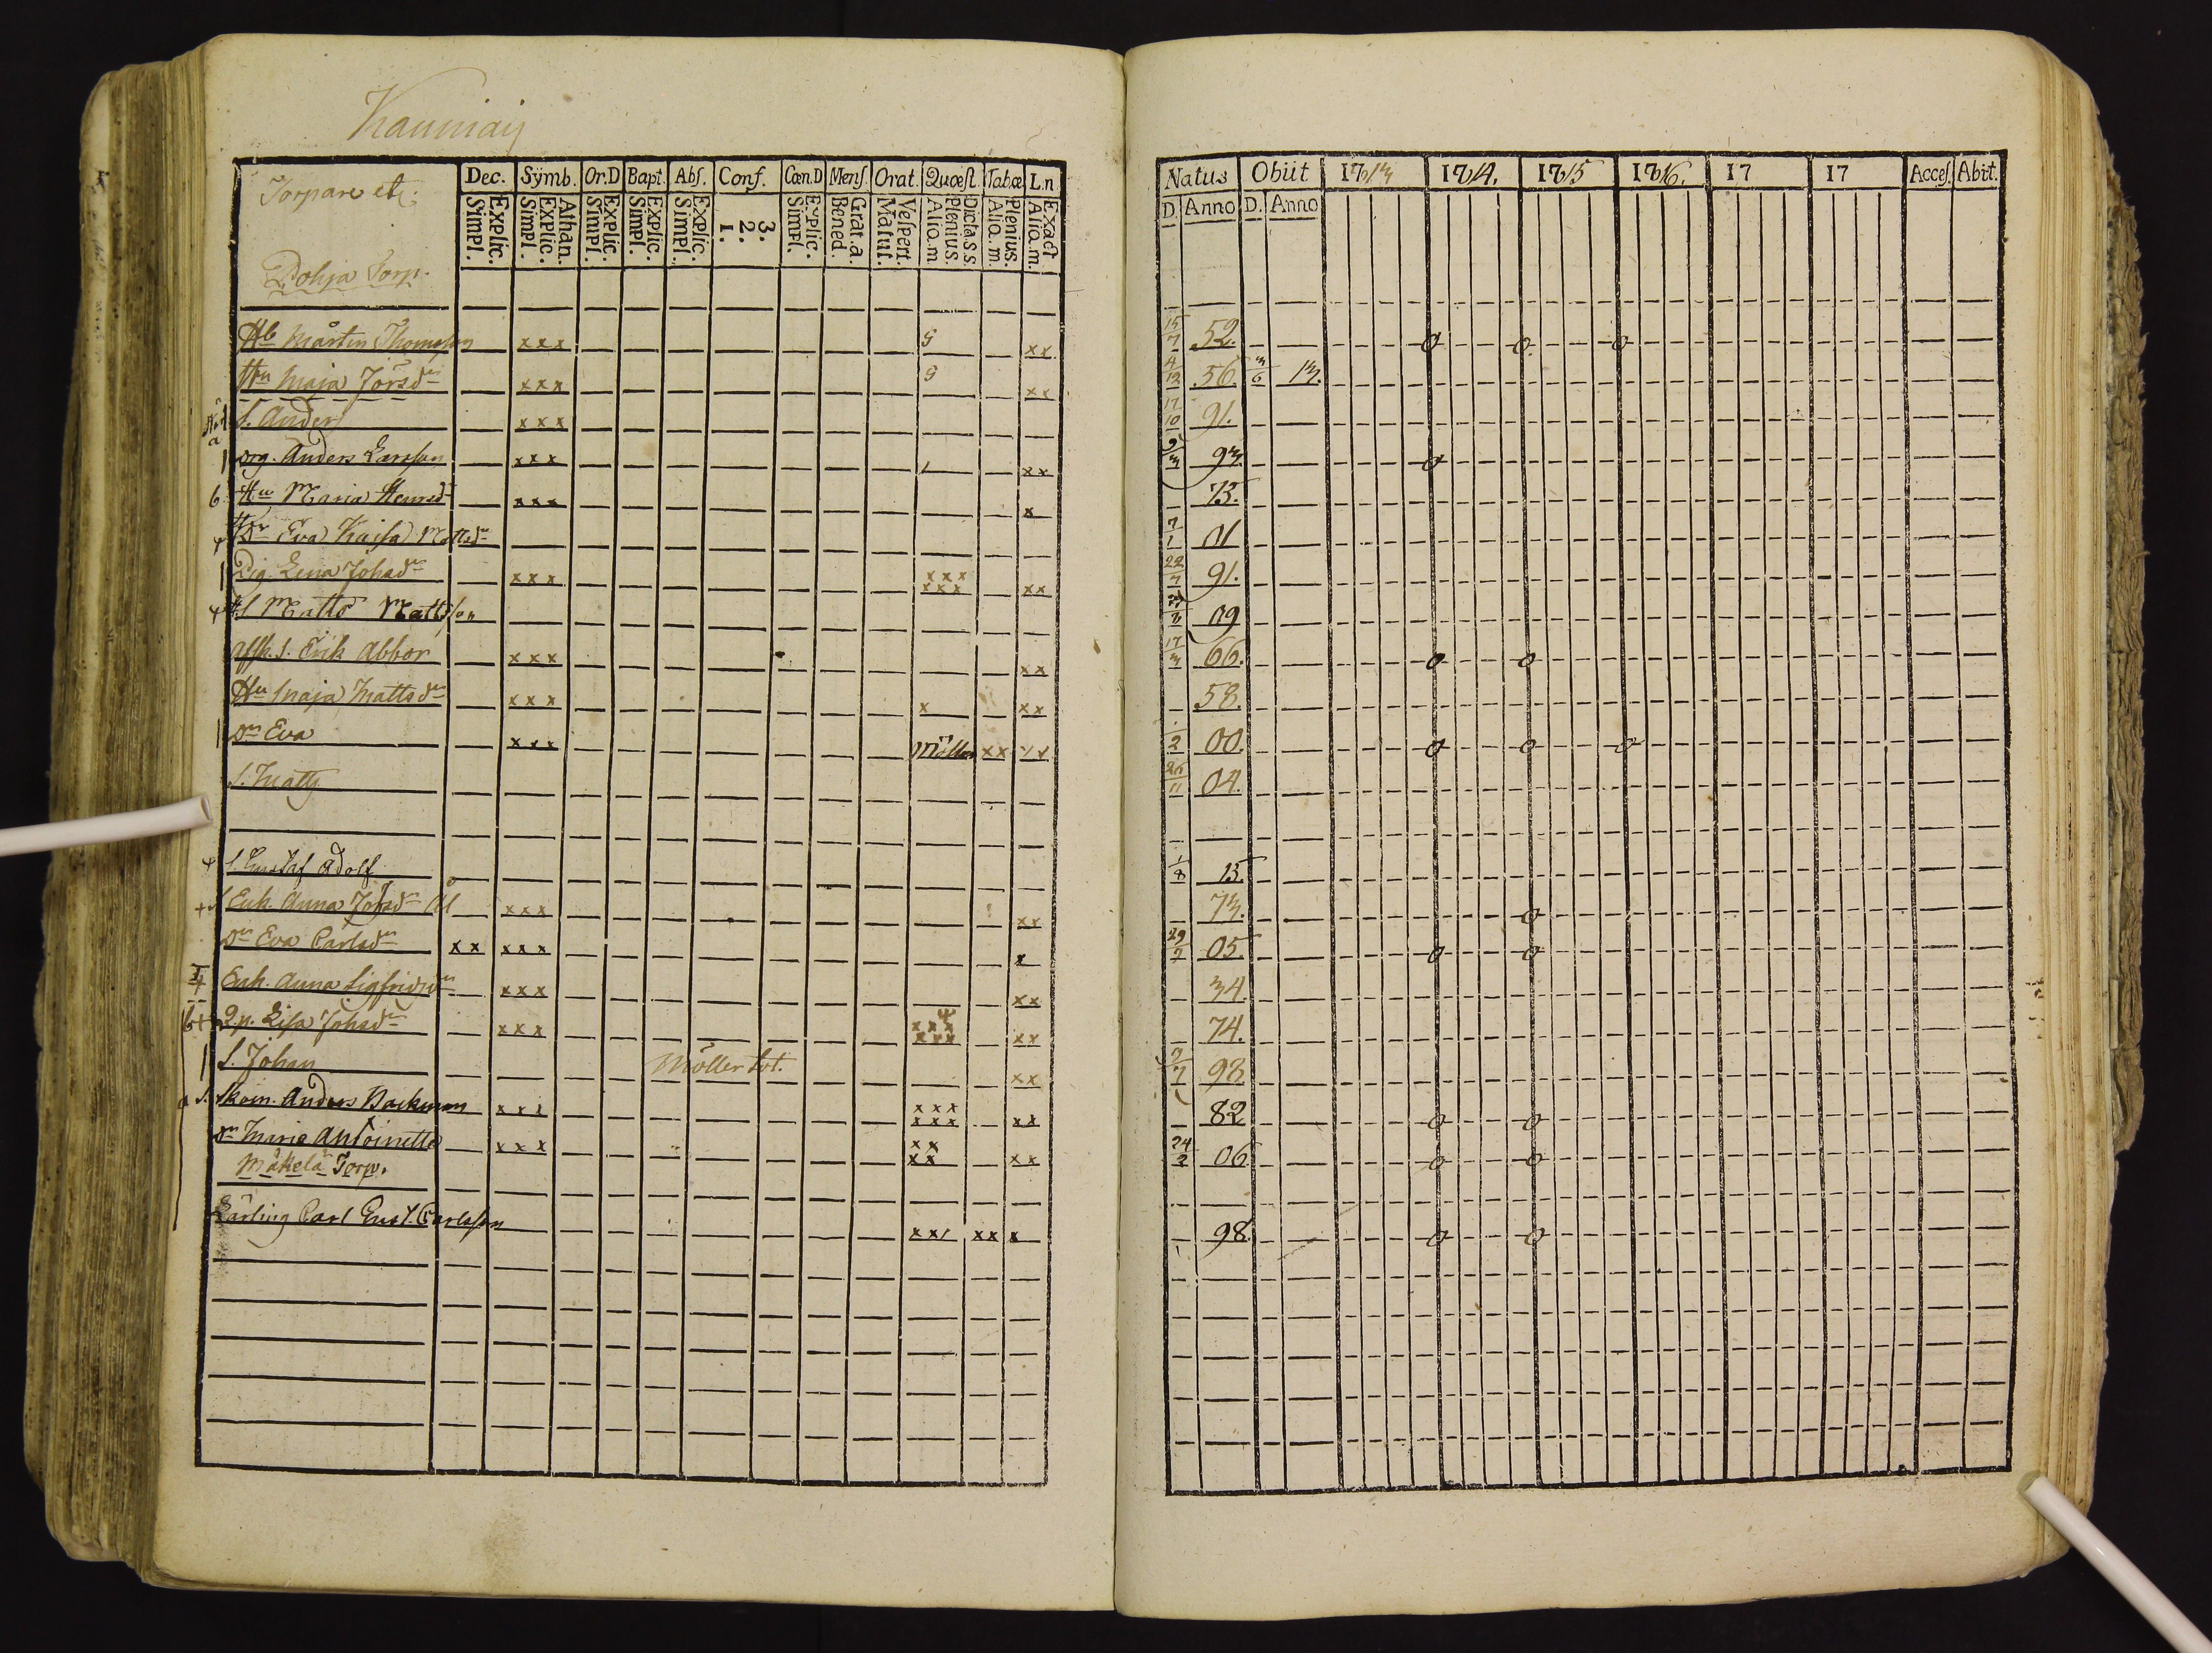 Torpare et:
Dec. Sÿmb. Or.D Bapt. Abſ. Conf. Cœn.D Menſ Orat. Quœſt. Tab.œ L.n
Simpl. Explic. Simpl. Explic. Athan. Simpl. Explic. Simpl. Explic. Simpl. Explic. 1. 2. 3. Simpl. Explic. Bened. Grat.a Matut. Veſpert. Alio.m Plenius. Dicta.s s. Alio.m. Plenius. Alio.m. Exact
Torp.
Hb Mårten Thomasson xxx g xx
Hu Maja Jörsdr xxx g xx
S. Anders xxx
Drg. Anders Larsson xxx xx
Hu Maria Henrsdr xxx x
Dr Eva Kaisa Mattsdr
Pig. Lena Johsdr xxx xxx xxx xx
S Matts Mattsson
Afsk. s. Erik Abbor xxx xx
Hu Maja Mattsdr xxx x xx
Dr Eva xxx Möller xx xx
S. Matts
S. Gustaf Adolf
Enk. Anna xxx xx
Dr Eva Carlsdr xx xxx x
Enk. Anna Sigfridsdr xxx xx
Lisa Johsdr xxx xxx xxx xx
S. Johan Möller tot. xx
Skom. Anders Backman xxx xxx xxx xx
Dr Maria Antoinette xxx xx xx xx
Mäkelä Torp.
Lärling Carl Gust. Carlsson xx xx x
Natus Obiit 1713 1714. 1715 1716. 17 17 Acceſ. Abit.
D. Anno D. Anno
15/7 52. o o o
4/12 56. 3/6 13.
17/10 91.
93. o
75.
7/1 01
22/7 91.
09
17/3 66. o o
58.
2 00. o o o
26/11 04.
1/8 15.
73. o
29/7 05. o o
34.
74.
7/7 98
82 o o
24/2 06 o o
98. o o